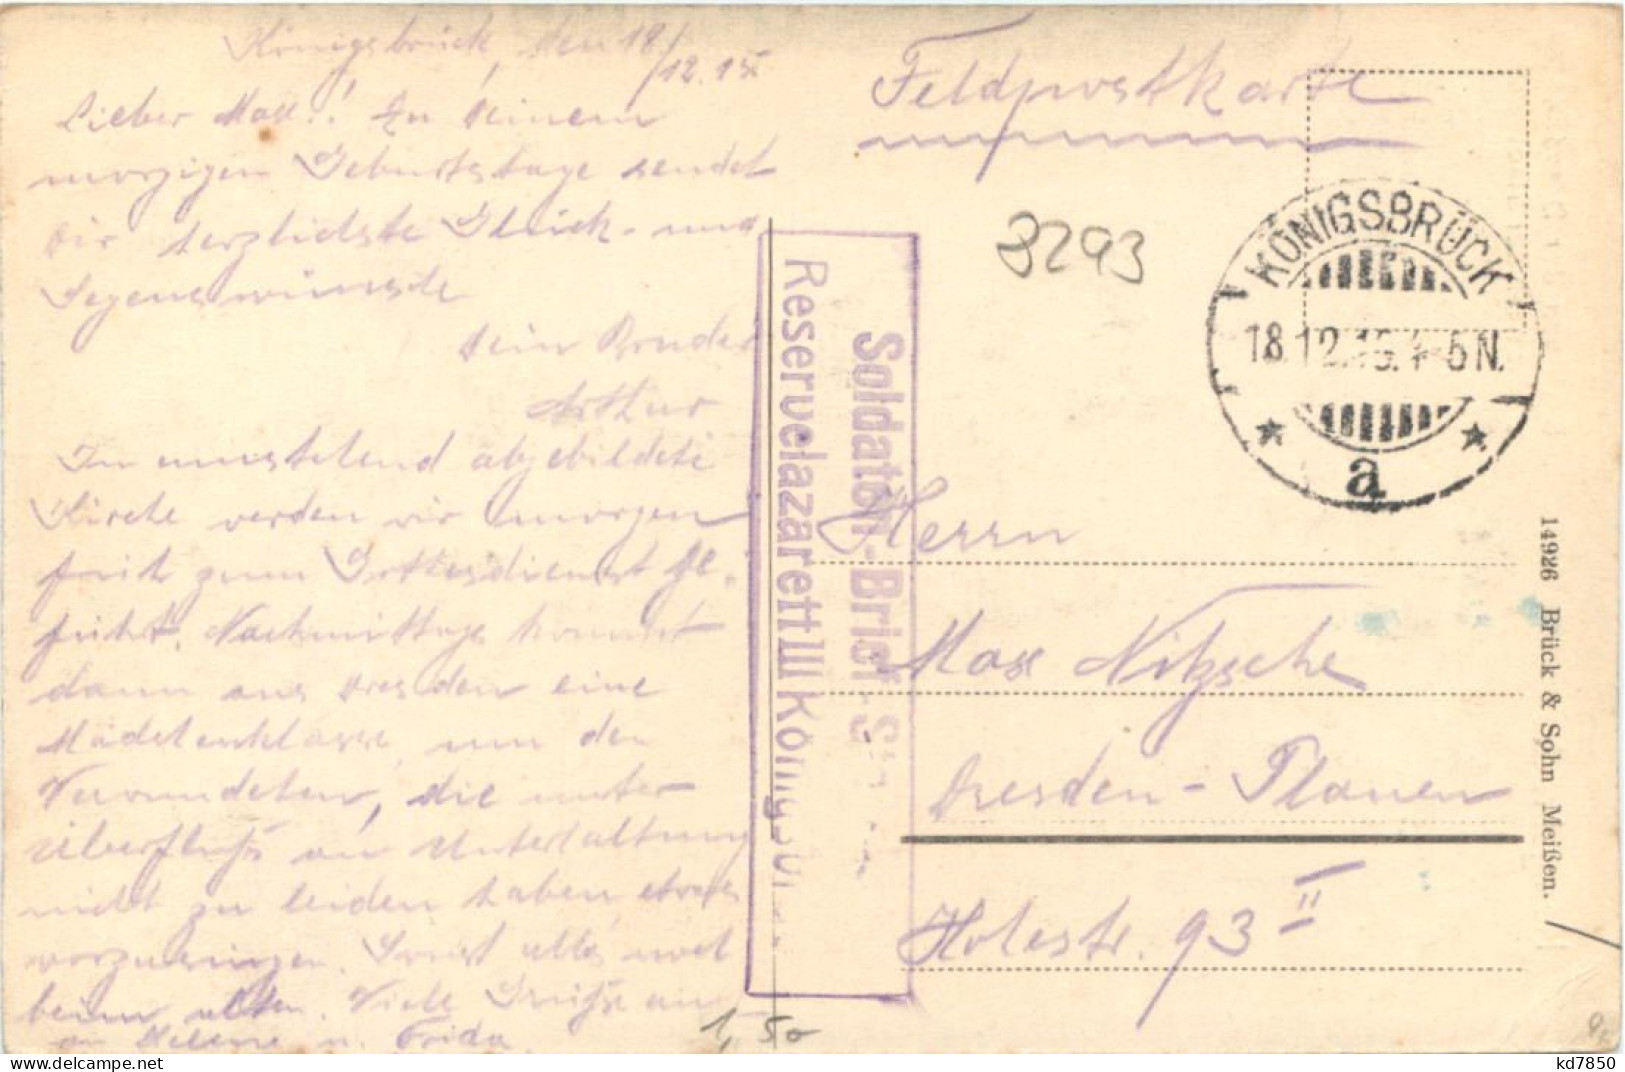 Königsbrück, den 18/
12.15.
Lieber Max! Zu Deinem
morgigen Geburtstage sendet
Dir herzlichste Glück- und
Segenswünsche
Dein Bruder
Arthur
In umstehend abgebildete
Kirche werden wir morgen
früh zum Gottesdienst ge-
führt. Nachmittags kommt
dann aus Dresden eine
Mädchenklasse, um den
Verwundeten, die unter
Überfluß an Unterhaltung
nicht zu leiden haben, etwas
vorzusingen. Sonst alles wohl
beim alten. Viele Grüße an
an Helene u. Frida
Feldpostkarte
3293
KÖNIGSBRÜCK
18.12.15. 4-5 N.
* a *
Soldaten-Brief.
Reservelazarett III Königsbrück
Herrn
Max Nitzsche
Dresden-Plauen
Hohestr. 93 II
14926 Brück & Sohn Meißen.
1,50
kd7850